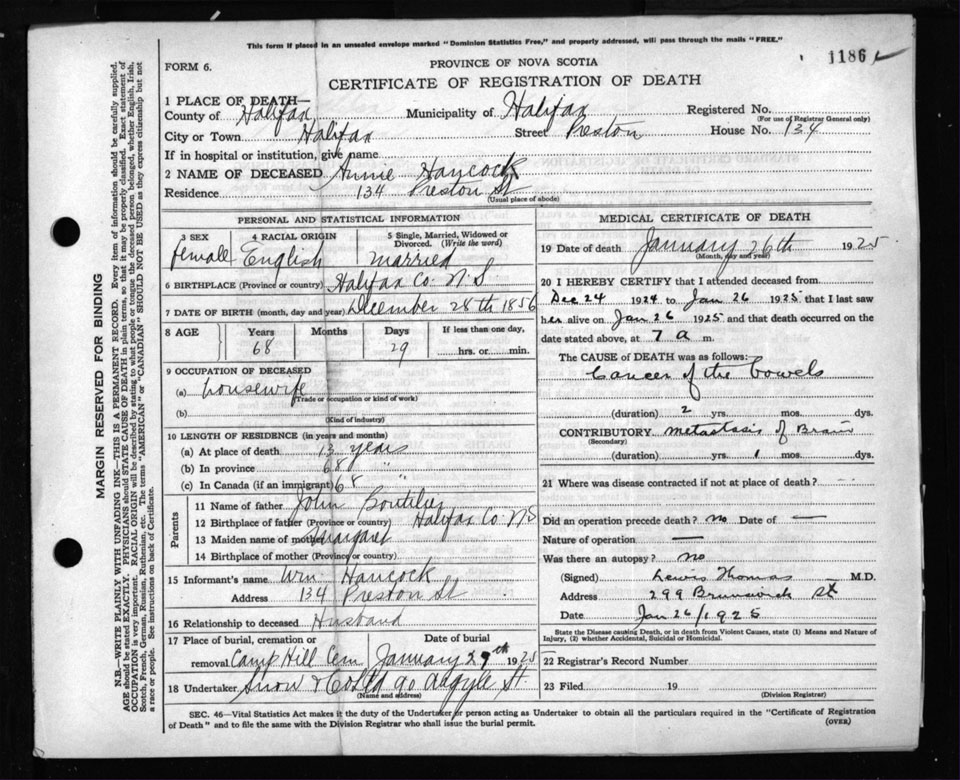 This form if placed in an unsealed envelope marked "Dominion Statistics Free," and properly addressed, will pass through the mails "FREE."
1186
FORM 6.
PROVINCE OF NOVA SCOTIA
CERTIFICATE OF REGISTRATION OF DEATH
1 PLACE OF DEATH—
County of Halifax Municipality of Halifax Registered No.
(For use of Registrar General only)
City or Town Halifax Street Preston House No. 134
If in hospital or institution, give name
2 NAME OF DECEASED Annie Hancock
Residence 134 Preston St
(Usual place of abode)
PERSONAL AND STATISTICAL INFORMATION
3 SEX 4 RACIAL ORIGIN 5 Single, Married, Widowed or Divorced. (Write the word)
female English married
6 BIRTHPLACE (Province or country) Halifax Co. N.S
7 DATE OF BIRTH (month, day and year) December 28th 1856
8 AGE Years Months Days If less than one day,
68 29 hrs. or min.
9 OCCUPATION OF DECEASED
(a) housewife
(Trade or occupation or kind of work)
(b)
(Kind of industry)
10 LENGTH OF RESIDENCE (in years and months)
(a) At place of death 13 years
(b) In province 68 "
(c) In Canada (if an immigrant) 68 "
Parents
11 Name of father John Boutilier
12 Birthplace of father (Province or country) Halifax Co. N.S
13 Maiden name of mother Margaret
14 Birthplace of mother (Province or country)
15 Informant's name Wm. Hancock
Address 134 Preston St
16 Relationship to deceased Husband
17 Place of burial, cremation or removal Camp Hill Cem Date of burial January 29th 1925
18 Undertaker Snow & Co Ltd 90 Argyle St
(Name and address)
MEDICAL CERTIFICATE OF DEATH
19 Date of death January 26th 1925
(Month, day and year)
20 I HEREBY CERTIFY that I attended deceased from
Dec 24 1924 to Jan 26 1925 that I last saw
her alive on Jan 26 1925 and that death occurred on the
date stated above, at 7 a m.
The CAUSE OF DEATH was as follows:
Cancer of the Bowels
(duration) 2 yrs. mos. dys.
CONTRIBUTORY metastasis of Brain
(Secondary)
(duration) yrs. 1 mos. dys.
21 Where was disease contracted if not at place of death? —
Did an operation precede death? no Date of —
Nature of operation —
Was there an autopsy? no
(Signed) Lewis Thomas M.D.
Address 299 Brunswick St
Date Jan 26/1925
State the Disease causing Death, or in death from Violent Causes, state (1) Means and Nature of
Injury, (2) whether Accidental, Suicidal or Homicidal.
22 Registrar's Record Number
23 Filed 19
(Division Registrar)
SEC. 46—Vital Statistics Act makes it the duty of the Undertaker or person acting as Undertaker to obtain all the particulars required in the "Certificate of Registration
of Death" and to file the same with the Division Registrar who shall issue the burial permit.
(OVER)
MARGIN RESERVED FOR BINDING
N.B.—WRITE PLAINLY WITH UNFADING INK—THIS IS A PERMANENT RECORD. Every item of information should be carefully supplied.
AGE should be stated EXACTLY. PHYSICIANS should STATE CAUSE OF DEATH in plain terms, so that it may be properly classified. Exact statement of
OCCUPATION is very important. RACIAL ORIGIN will be described by stating to what people or tongue the deceased person belonged, whether English, Irish,
Scotch, French, German, Russian, Ruthenian, etc. The terms "AMERICAN" or "CANADIAN" SHOULD NOT BE USED as they express citizenship but not
a race or people. See instructions on back of Certificate.